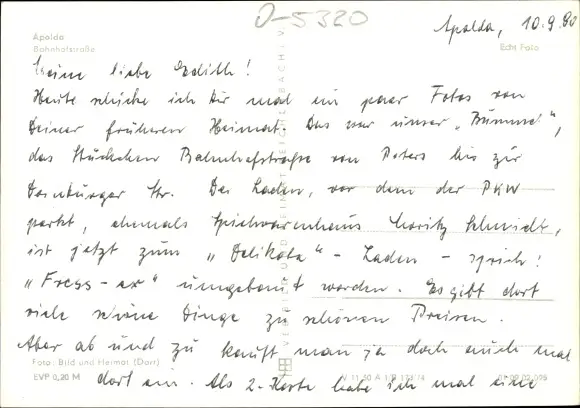 D-5320
Apolda, 10.9.80
Apolda
Bahnhofstraße
Echt Foto
Meine liebe Edith!
Heute schicke ich Dir mal ein paar Fotos von
Deiner früheren Heimat. Das war unser „Bummel",
das Stückchen Bahnhofstraße von Peters bis zur
Dornburger Str. Der Laden, vor dem der PKW
parkt, ehemals Spielwarenhaus Moritz Schmidt,
ist jetzt zum „Delikat" - Laden - sprich!
„Fress-ex" umgebaut worden. Es gibt dort
viele schöne Dinge zu schönen Preisen.
Aber ab und zu kauft man ja doch auch mal
Foto: Bild und Heimat (Darr)
dort ein. Als 2. Karte habe ich mal eine
EVP 0,20 M
VERLAG BILD UND HEIMAT REICHENBACH I. V.